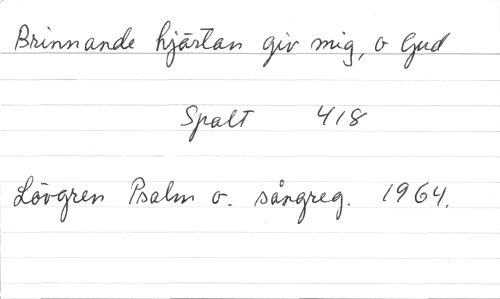 Brinnande hjärtan giv mig, o Gud
Spalt 418
Lövgren Psalm o. sångreg. 1964.